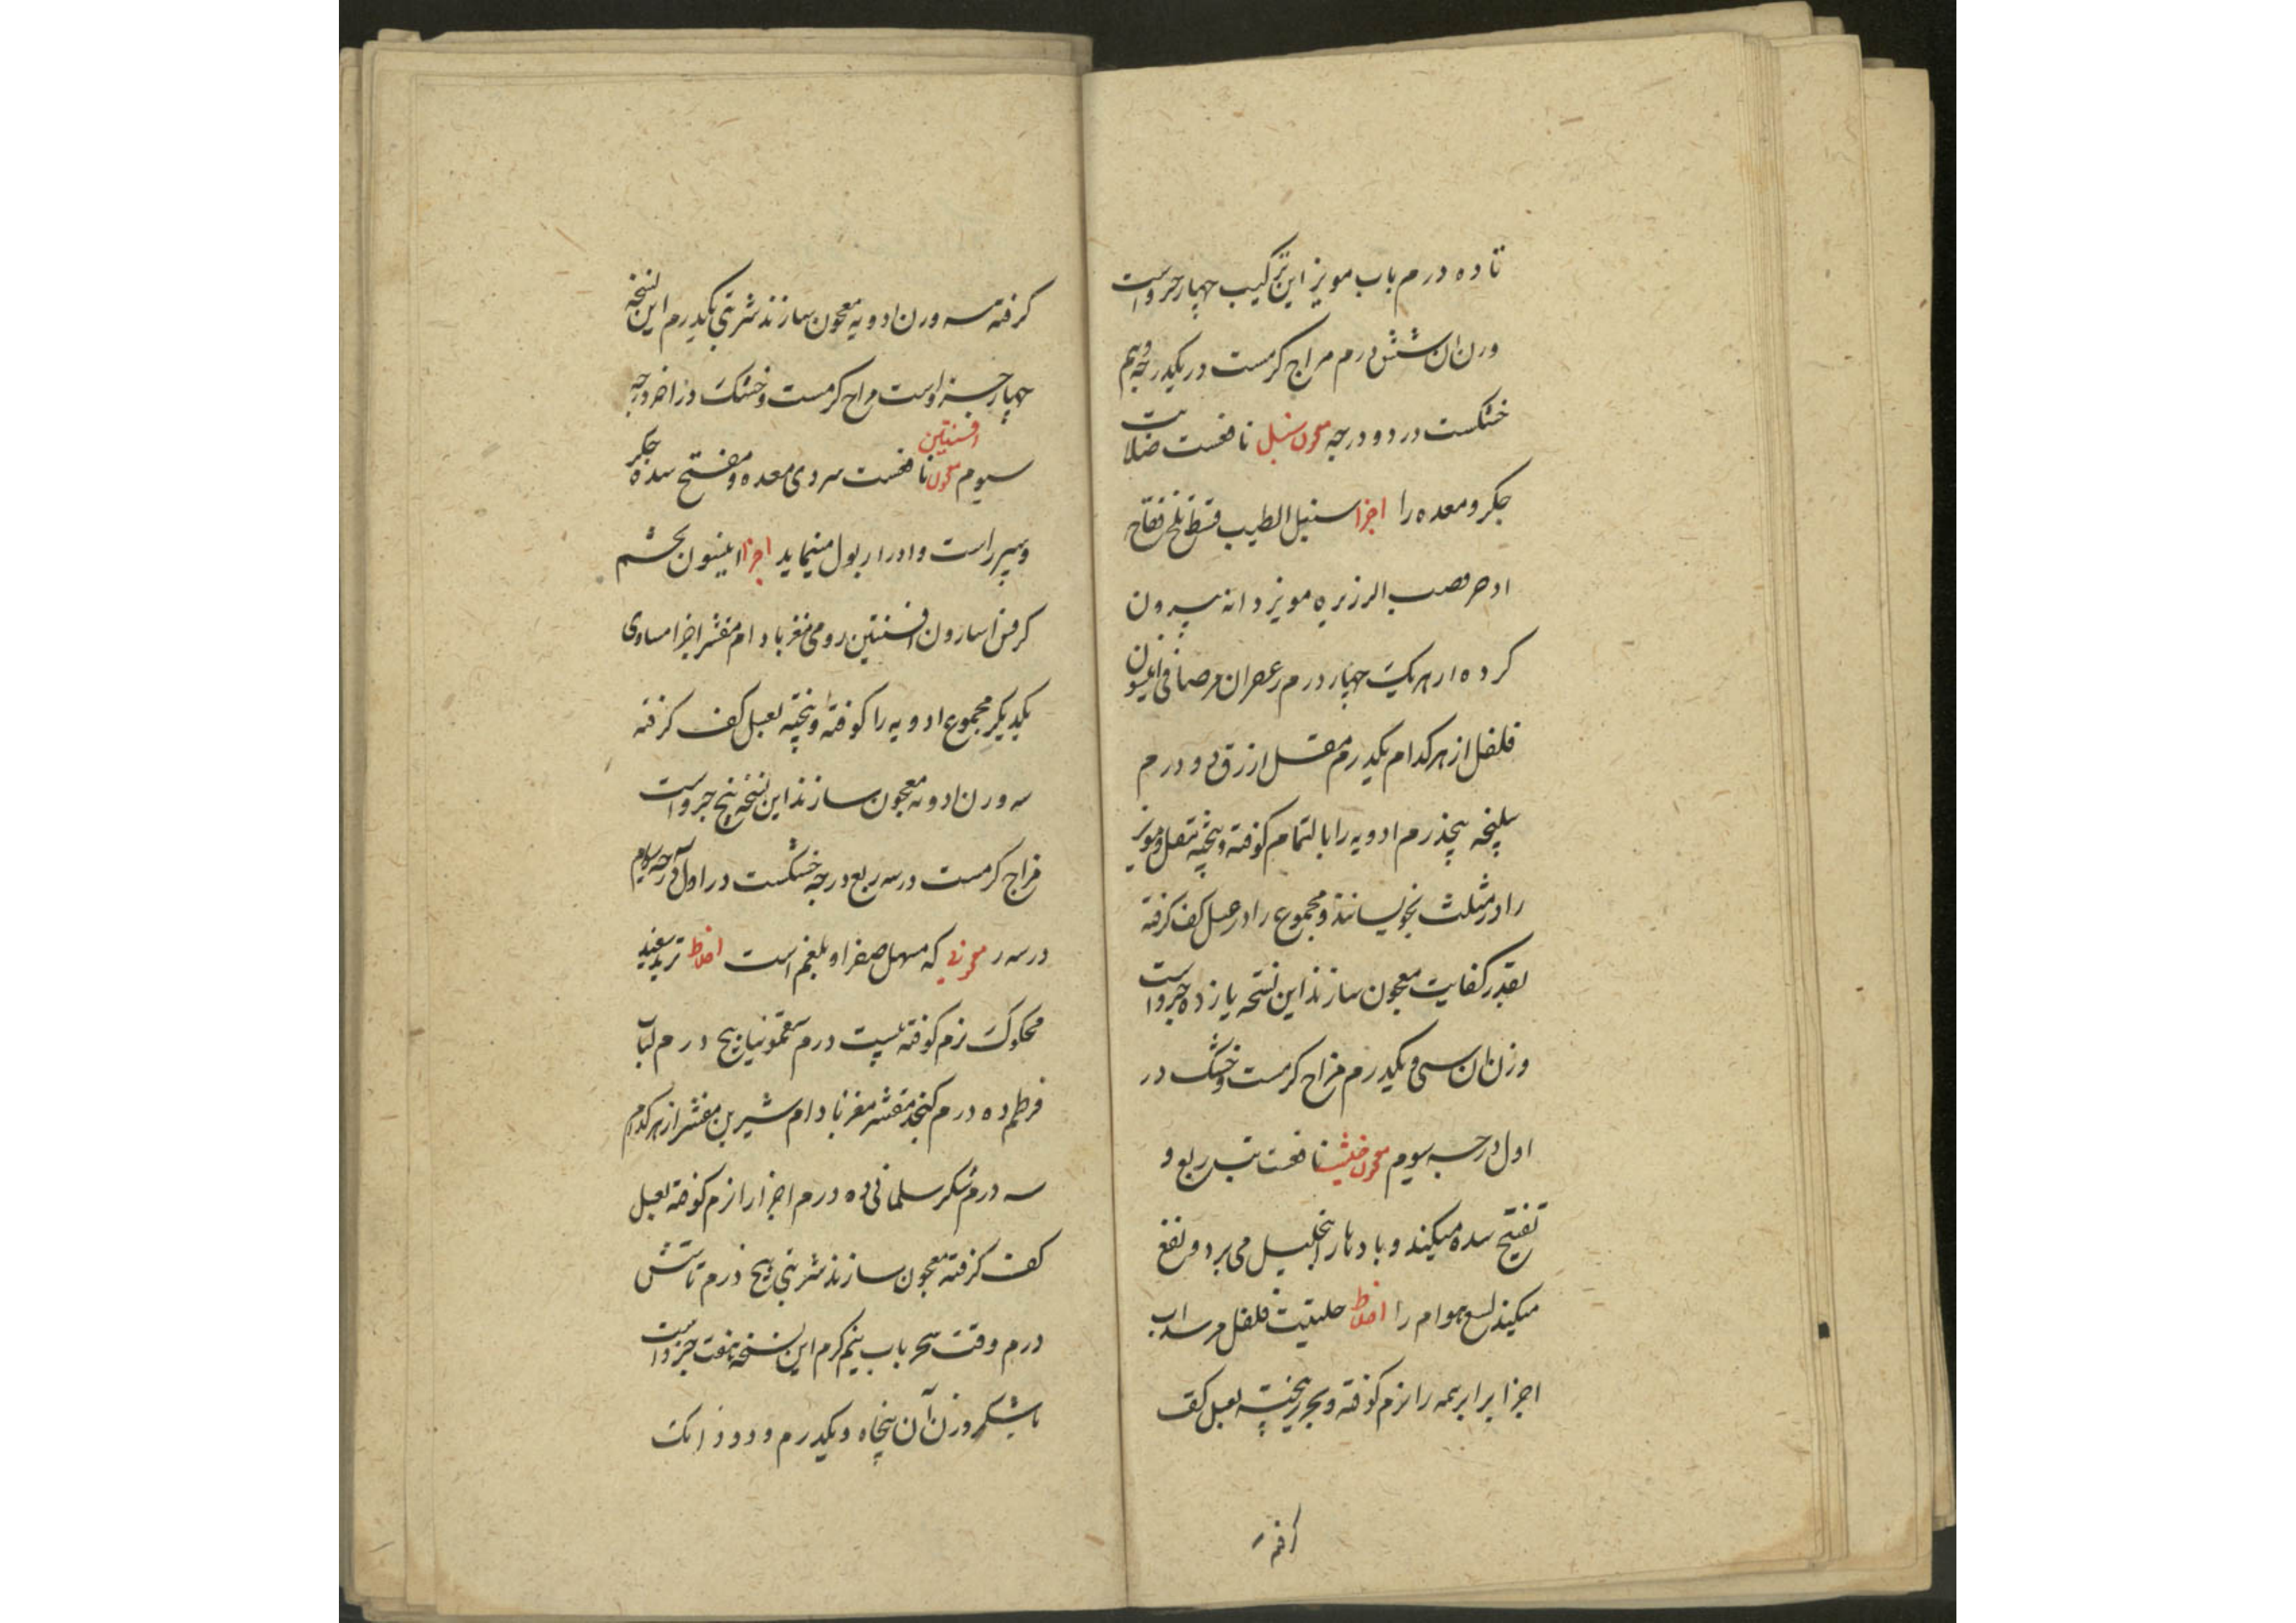 تا ده درم باب مویز این ترکیب چهار جزو است
وزن ان شش درم مزاج کرمست در یکدرجه و نیم
خشکست در دو درجه معجون سنبل نافعست صلابت
جکر و معده را اجزا سنبل الطیب قسط تلخ فقاح
ادخر قصب الزریره مویز دانه بیرون
کرده از هر یک چهار درم زعفران مرصافی انیسون
فلفل از هر کدام یکدرم مقل ازرق دو درم
سلیخه پنجدرم ادویه را بالتمام کوفته و بیخته مقل و مویز
را در مثلث بخویسانند و مجموع را در عسل کف کرفته
بقدر کفایت معجون سازند این نسخه یازده جزو است
وزن ان سی و یکدرم مزاج کرمست و خشک در
اول درجه سیوم معجون نافعست تب ربع و
تفتیح سده میکند و بادها را تحلیل می برد و نفع
میکند لسع هوام را اخلاط حلتیت فلفل مر سداب
اجزا برابر همه را نرم کوفته و بحریر بیخته بعسل کف
کرفته
کرفته سه وزن ادویه معجون سازند شربتی یکدرم این نسخه
چهار جزو است مزاج کرمست و خشک در اخر درجه
سیوم معجون افسنتین نافعست سردی معده و مفتح سده جکر
و سپرز است و ادرار بول مینماید اجزا انیسون تخم
کرفس اسارون افسنتین رومی مغز بادام مقشر اجزا مساوی
یکدیکر مجموع ادویه را کوفته و بیخته بعسل کف کرفته
سه وزن ادویه معجون سازند این نسخه پنج جزو است
مزاج کرمست در سه ربع درجه خشکست در اول درجه سیوم
که مسهل صفرا و بلغم است اخلاط تربد سفید
محکوک نرم کوفته بیست درم سقمونیا پنج درم لباب
قرطم ده درم کنجد مقشر مغز بادام شیرین مقشر از هر کدام
سه درم شکر سلیمانی ده درم اجزا را نرم کوفته بعسل
کف کرفته معجون سازند شربتی پنج درم تا شش
درم وقت سحر باب نیم کرم این نسخه هفت جزو است
با شکر وزن آن پنجاه و یکدرم و دو دانک